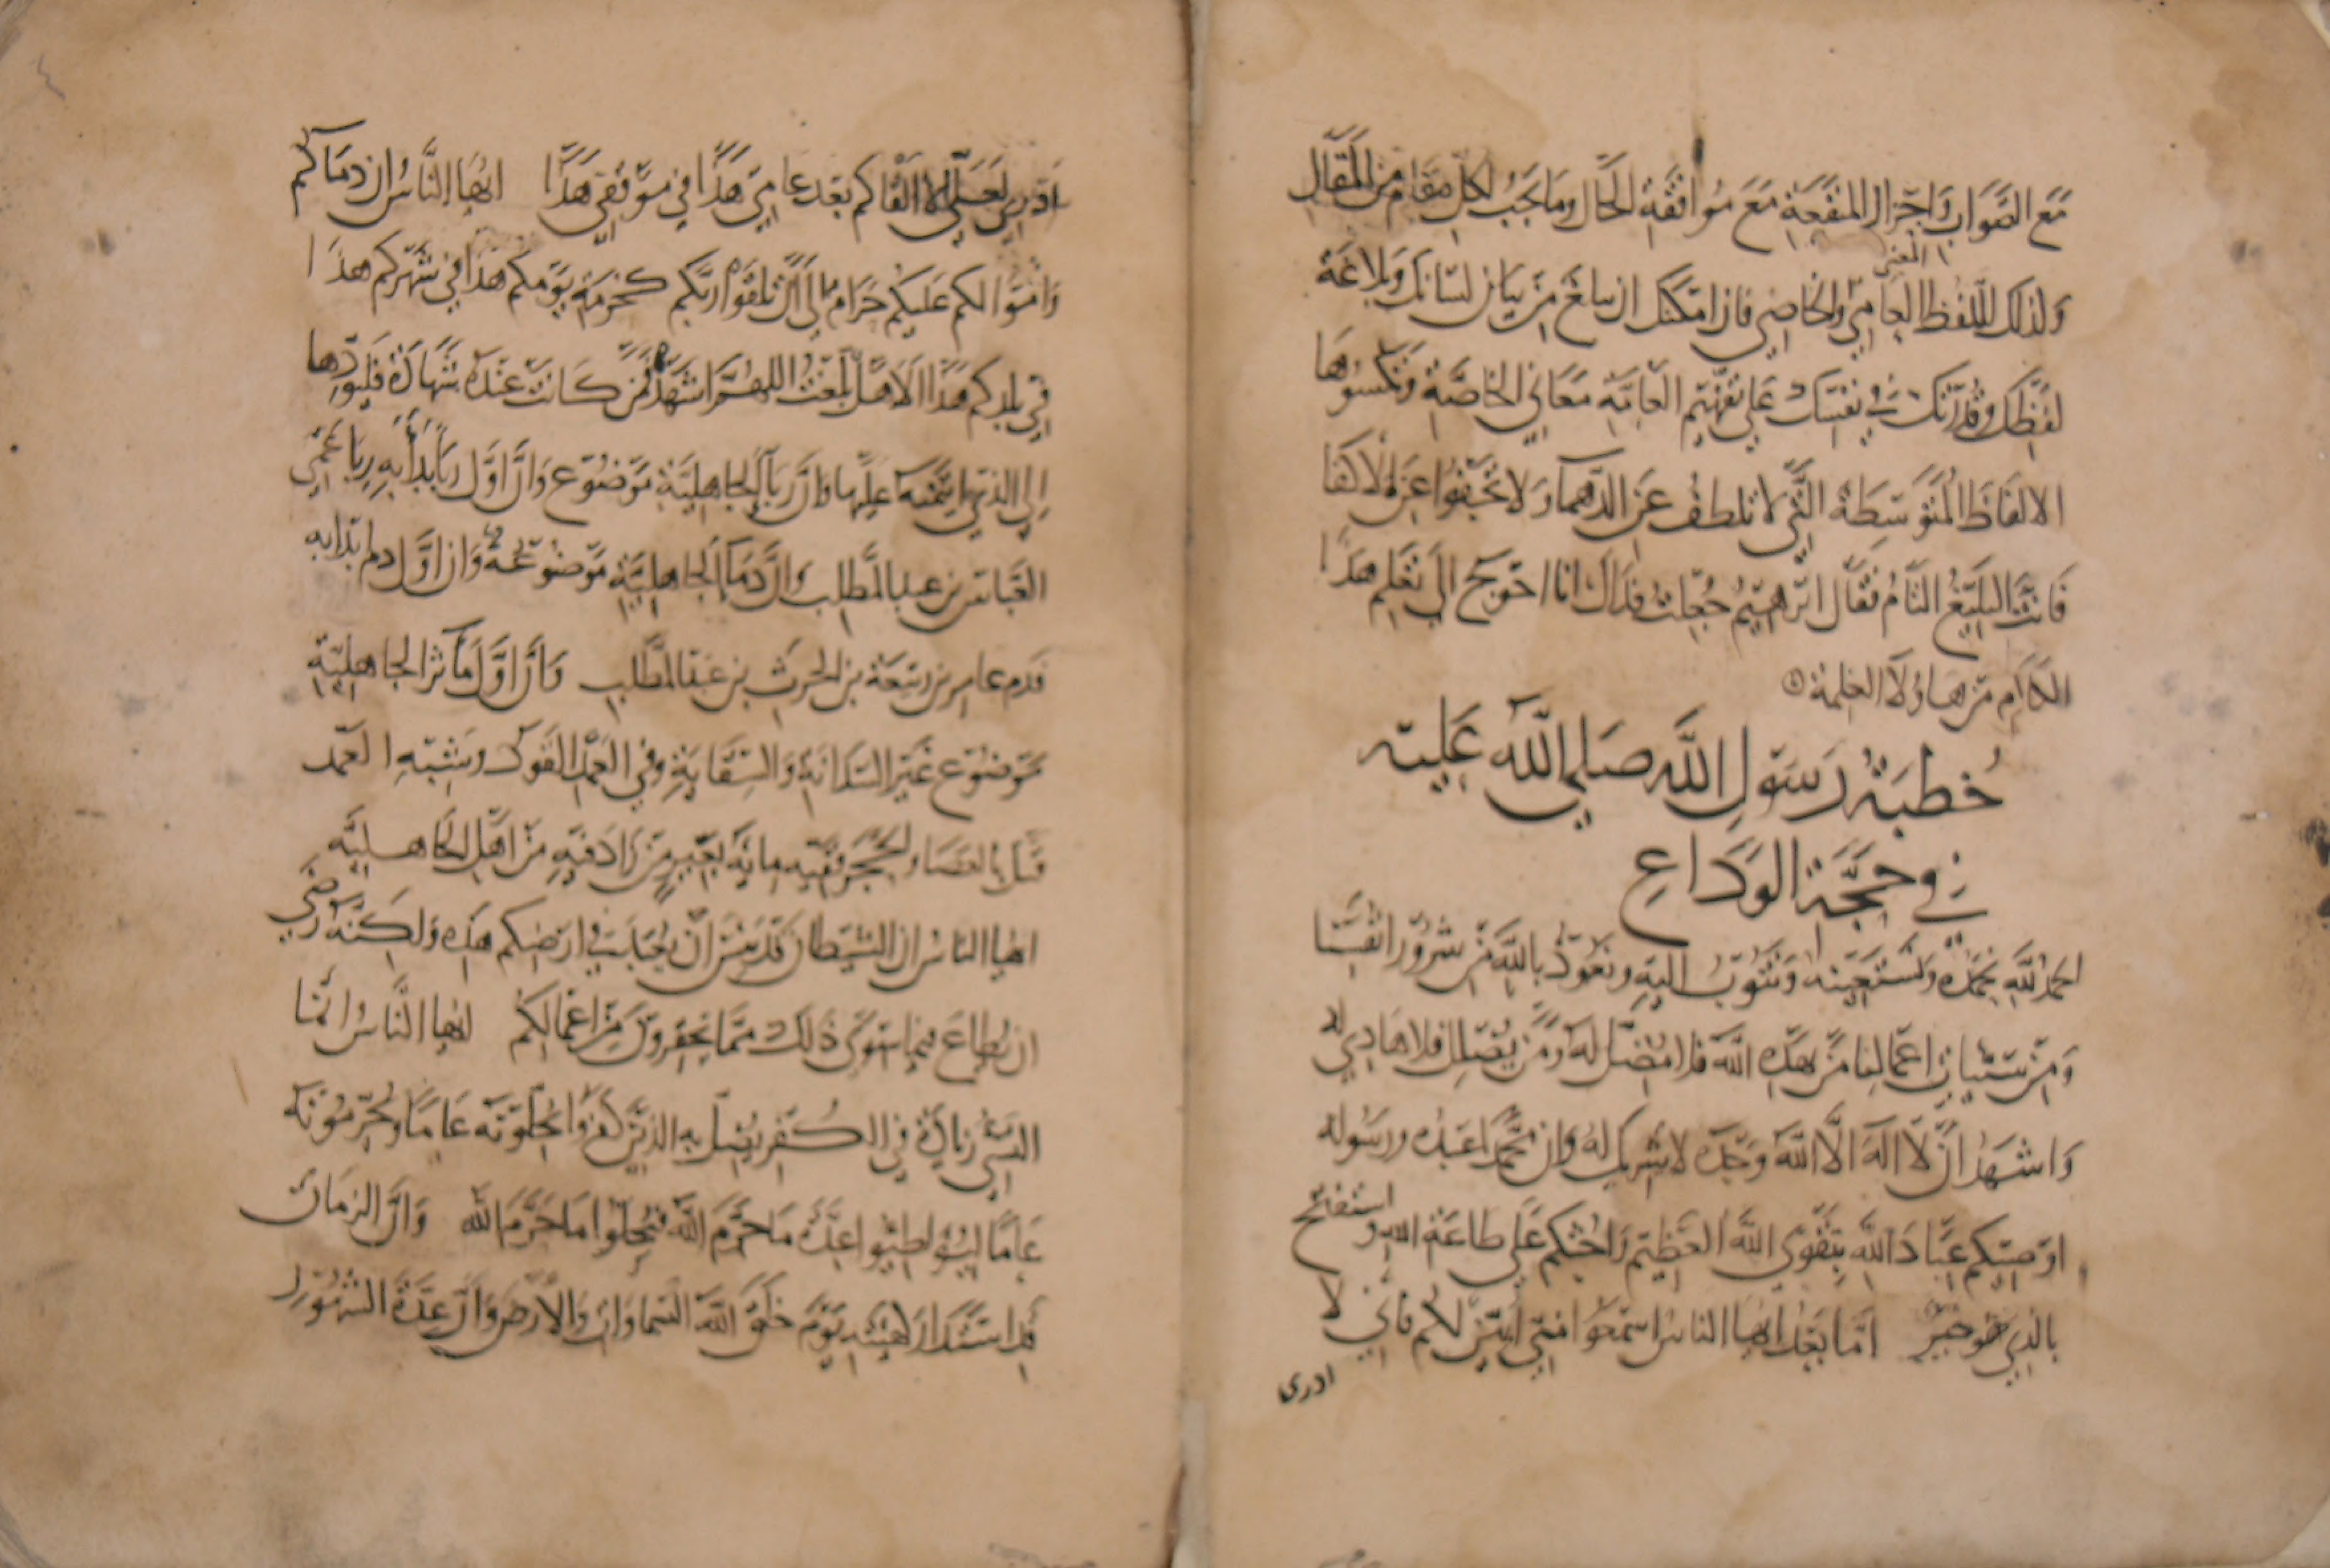 مَع الصَّوَابِ وَاحرَاز المنفَعَةِ مَعَ مُوَافَقَةِ الحَال وما يَجبُ لكل مقام من المقَالِ
المعنى
وَلذلك اللّفظ العَامِي والخاصِي فان امكنك ان تبلغ مِن بيَان لسَانك وَبلاغة
لفظِكَ وقُدرتكَ في نفسِكَ عَلى تفهيم العَامَّةِ مَعَاني الخاصَّةِ وَتكسُوهَا
الالفَاظَ المُتَوَسِطَةَ التَّي لا تلطفُ عَن الدَّهمَا وَلا تجفوا عَن الاَكفَا
فَانتَ البَليغُ التَّامُ فقَال ابرَهيمُ جُعِلتُ فدَاك انا احوَج الي تعَلمِ هذا
الكلَامِ مِن هاؤلاَ الغلمة
خُطبَةُ رَسَولِ اللَّه صَلي اللَّه عَليه
في حجَّةِ الوَدَاعِ
الحمدُ للَّهِ نحمَدُهُ ونَستَعِينه وَنتُوبُ اليهِ ونعُوذُ باللَّهِ مِن شرُورِ انفسِنا
وَمِن سَيئاتِ اعمَالِنا مَن يهدِهِ اللَّهُ فلا مُضِلَّ لهُ وَمَن يُضلِل فلا هَادِي له
وَاشهَدُ ان لاَّ الهَ الاَّ اللَّه وَحدَه لا شريك لهُ وان محَمداً عَبدُه ورسُوله
اوصِيكم عبَادَ اللَّهِ بتقوَي اللَّهِ العَظِيم وَاحُثكم عَلي طاعَة الله واستفتح
بالذِي هُو خيرٌ امَّا بَعدُ ايها الناسُ اسمعُوا مِنّي ابَيّن لكم فاني لا
ادري
ادري لعَلّي لا القاكم بَعد عامِي هَذا في موقفي هَذا ايُّها النَّاسُ ان دمَاكم
وَامْوَالكم عَليكم حَرَامٌ الي اَن تلقَوا ربَّكم كحُرمَة يَومكم هَذا في شهرِكم هَذا
في بلدِكم هَذا اَلاَ هَل بلَّغتُ اللهُمَّ اشهَد فمَن كَانت عندَه اَمَانة فليؤدّها
الي الذي ايتمنه عليها وَان رِبَا الجاهِليَّةِ مَوضُوع وَان اوَّل رِبَا اَبدَأُ بهِ رِبَا عمِّي
العَباس بن عبد المطَّلِب وَانَّ دمَا الجاهِليَّةِ مَوضُوعَةٌ وَان اوَّل دم ابدا به
دَم عامِر بن ربيعَة بن الحرثِ بن عَبد المطَّلِب وَان اوَّل مآثر الجاهِليَّةِ
مَوضُوع غَير السَدَانةِ وَالسِقَايَةِ وفي العَمد القَود وشِبهِ العَمد
قتل بالعَصَا والحجَر وفيه ماية بعير من زَادَ فهو من اَهل الجاهليَّه
ايها الناسُ ان الشيطان قَد يَئسَ ان يُعبَد في ارضِكم هذِه وَلكِنه رَضي
ان يُطاع فيما سِوَي ذلكَ ممَّا تحقرونَ مِن اعمَالِكُم ايها النَّاسُ انّما
النسِي زيَادة في الكُفر يُضَلّ به الذِينَ كفروا يُحلّونَه عَامًا ويُحرّمُونَه
عَامًا ليُوَاطِئوا عِدَّةَ مَا حرَّمَ اللَّه فيُحِلّوا مَا حَرَّمَ اللَّه وَانّ الزمَان
قد استدَار كهيئته يَوم خلق اللَّهُ السَّمَاوَاتِ وَالارض وَان عِدَّةَ الشهُورِ